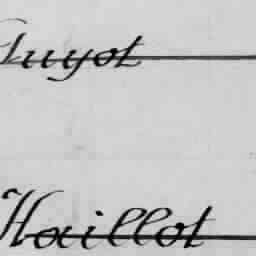 Guyot
Haillot